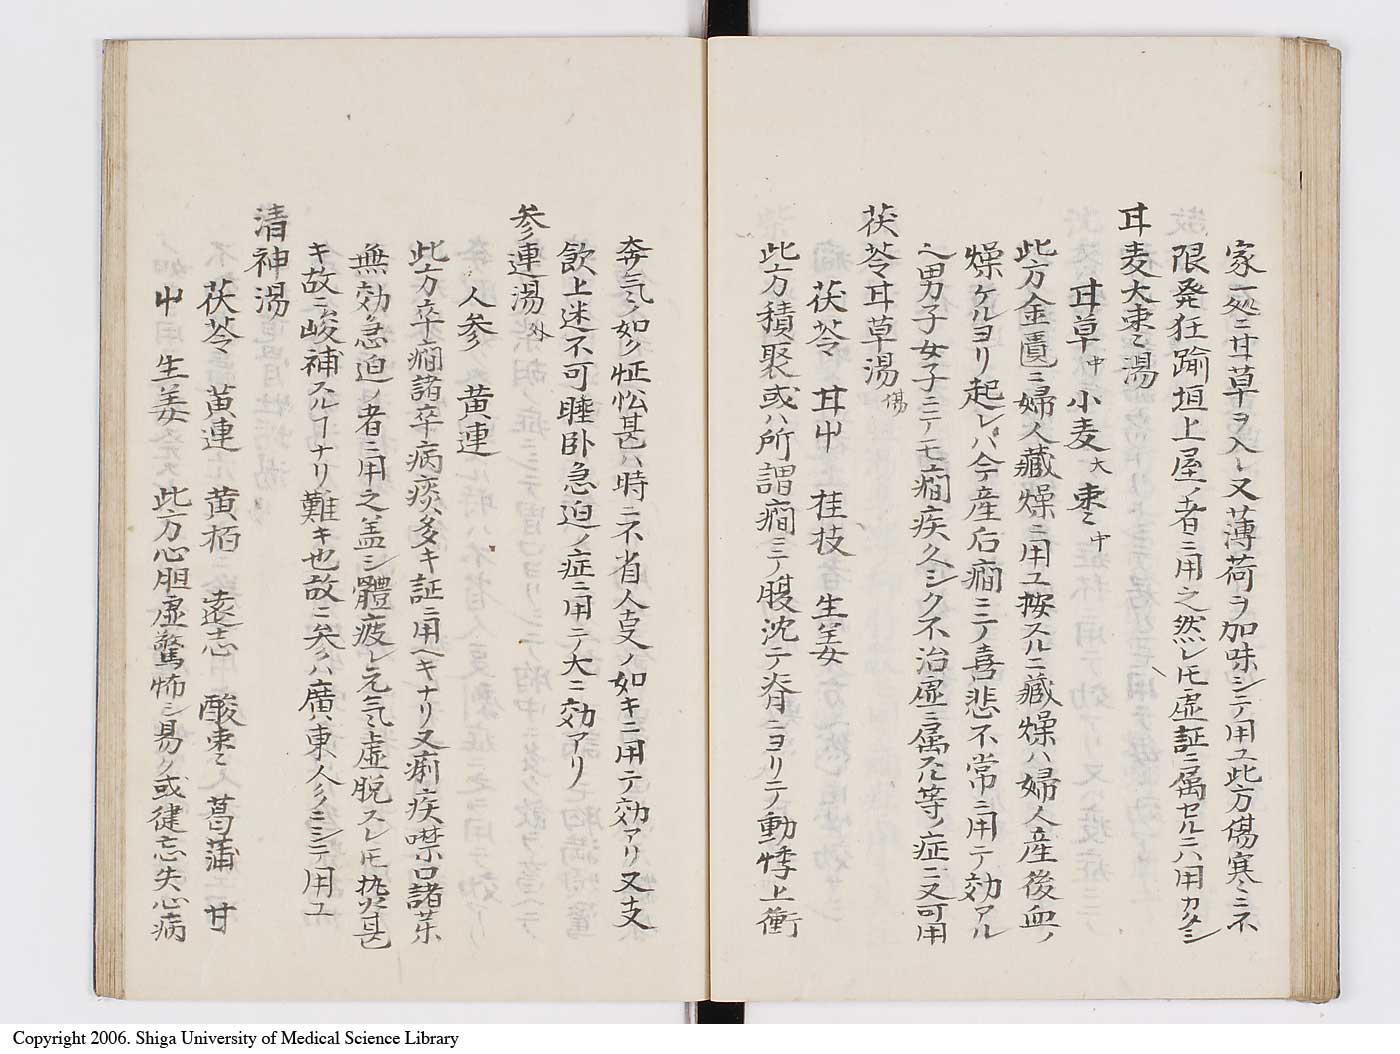 家一処ニ甘草ヲ入レ又薄荷ヲ加味シテ用ユ此方傷寒ミニ不
限発狂踰垣上屋ノ者ニ用之然レ𪜈虚証ニ属セルニハ用カタシ
甘麦大棗湯
甘草中 小麦大 棗ミ中
此方金匱ニ婦人蔵燥ニ用ユ按スルニ蔵燥ハ婦人産後血ノ
燥ケルヨリ起レバ今産后癇ミニテ喜悲不常ニ用テ効アル
ヘ男子女子ニテモ癇疾久シク不治虚ニ属スル等ノ症ニ又可用
茯苓甘草湯 傷
茯苓 甘中 桂枝 生姜
此方積聚或ハ所謂癇ミニテ腹沈テ脊ニヨリテ動悸上衝
奔気ノ如ク怔忪甚ハ時ニ不省人事ノ如キニ用テ効アリ又支
飲上迷不可睡卧急迫ノ症ニ用テ大ニ効アリ
参連湯 外
人参 黄連
此方卒癇諸卒病痰多キ証ニ用ヘキナリ又痢疾噤口諸茱
無効急迫ノ者ニ用之盖シ體疲レ元気虚脱スレ𪜈熱甚
キ故ニ峻補スルヿナリ難キ也故ニ参ハ廣東人ミニシテ用ユ
清神湯
茯苓 黄連 黄栢 遠志 酸棗ミ 菖蒲 甘
中 生姜 此方心胆虚驚怖シ易ク或健忘失心病
Copyright 2006. Shiga University of Medical Science Library